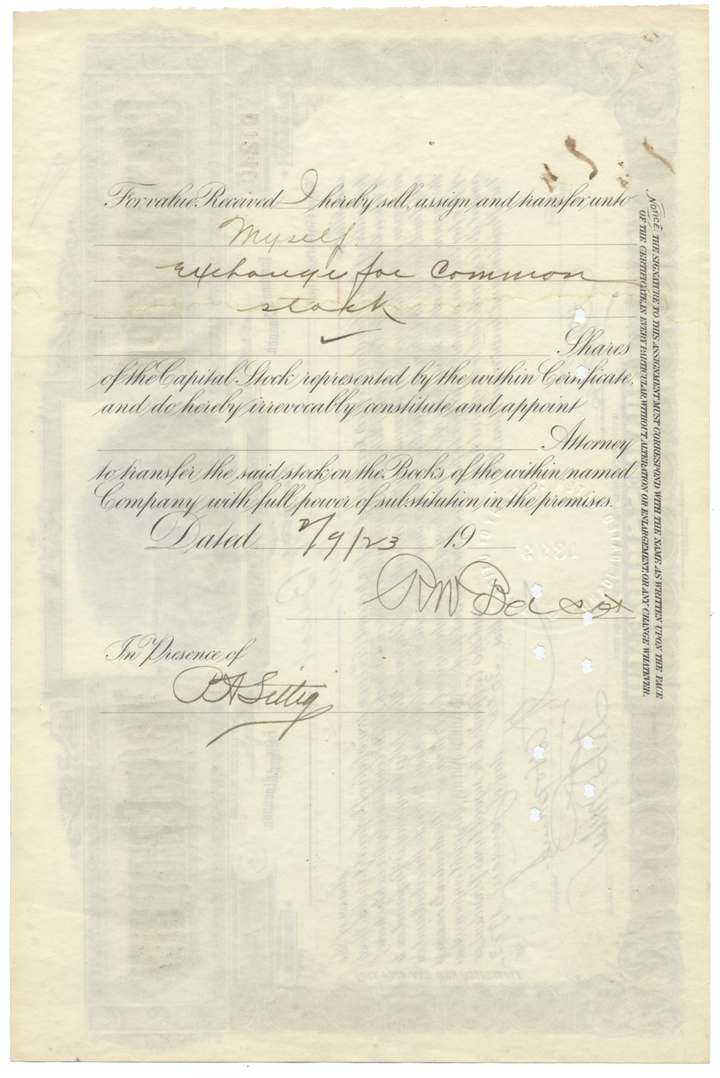 For value Received I hereby sell, assign and transfer unto
Myself
exchange for Common
stock
Shares
of the Capital Stock represented by the within Certificate,
and do hereby irrevocably constitute and appoint
Attorney
to transfer the said stock on the Books of the within named
Company with full power of substitution in the premises.
Dated 2/9/23 19
RW
In Presence of
Sittig
NOTICE. THE SIGNATURE TO THIS ASSIGNMENT MUST CORRESPOND WITH THE NAME AS WRITTEN UPON THE FACE
OF THE CERTIFICATE, IN EVERY PARTICULAR, WITHOUT ALTERATION OR ENLARGEMENT, OR ANY CHANGE WHATEVER.